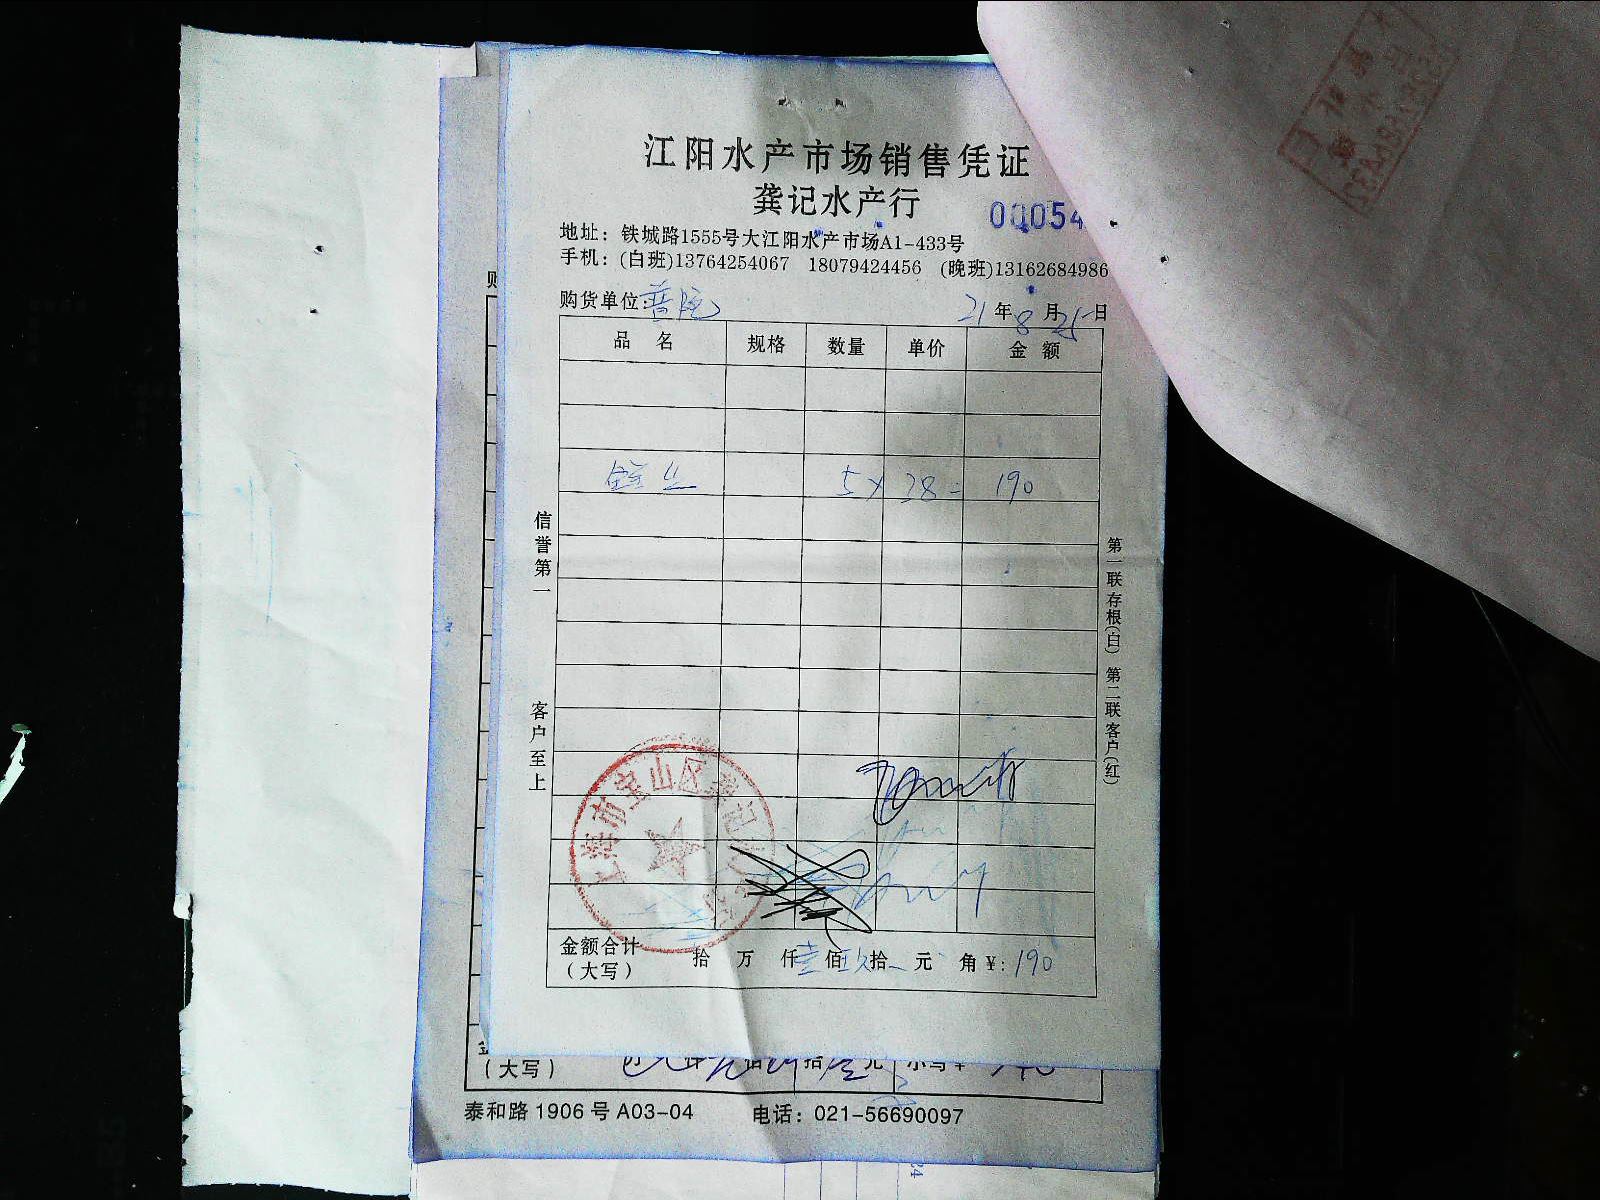 江阳水产市场销售凭证
龚记水产行
00054
地址：铁城路1555号大江阳水产市场A1-433号
手机：(白班)13764254067 18079424456 (晚班)13162684986
购货单位：普陀 21年8月25日
品名 规格 数量 单价 金额
5× 38= 190
信誉第一
客户至上
第一联存根(白) 第二联客户(红)
上海市宝山区龚记水产行
金额合计（大写） 拾 万 仟壹佰玖拾 元 角 ￥: 190
（大写）
拾 元 小写￥
泰和路 1906 号 A03-04 电话：021-56690097